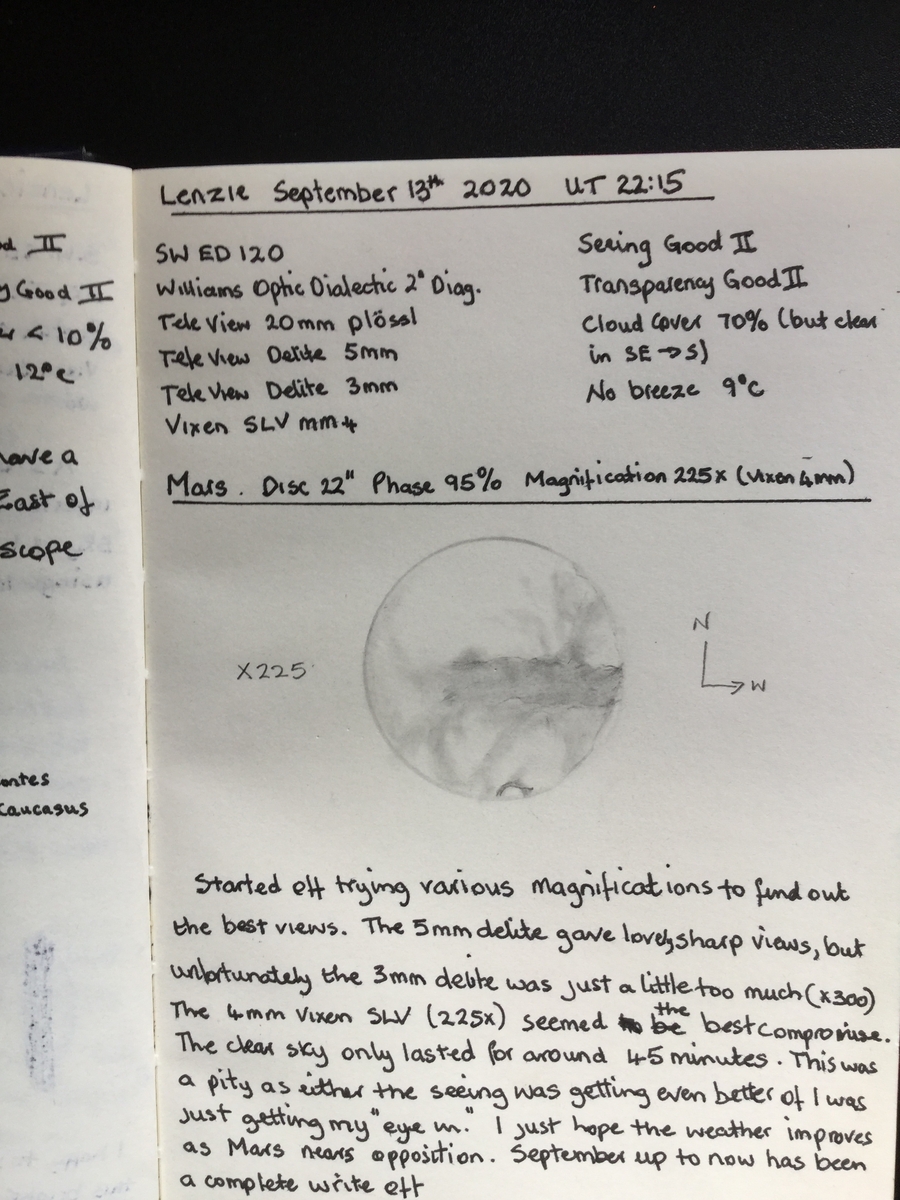 Lenzie September 13th 2020 UT 22:15
SW ED 120
Williams Optic Dialectic 2" Diag.
Tele View 20mm plössl
Tele View Delite 5mm
Tele View Delite 3mm
Vixen SLV mm 4
Seeing Good II
Transparency Good II
Cloud Cover 70% (but clear
in SE → S)
No breeze 9°C
Mars. Disc 22" Phase 95% Magnification 225x (Vixen 4mm)
X225
N
W
Started off trying various magnifications to find out
the best views. The 5mm delite gave lovely sharp views, but
unfortunately the 3mm delite was just a little too much (x300)
The 4mm Vixen SLV (225x) seemed to be the best compromise.
The clear sky only lasted for around 45 minutes. This was
a pity as either the seeing was getting even better of I was
just getting my "eye in." I just hope the weather improves
as Mars nears opposition. September up to now has been
a complete write off
II
Good II
< 10%
12°C
have a
East of
scope
Caucasus